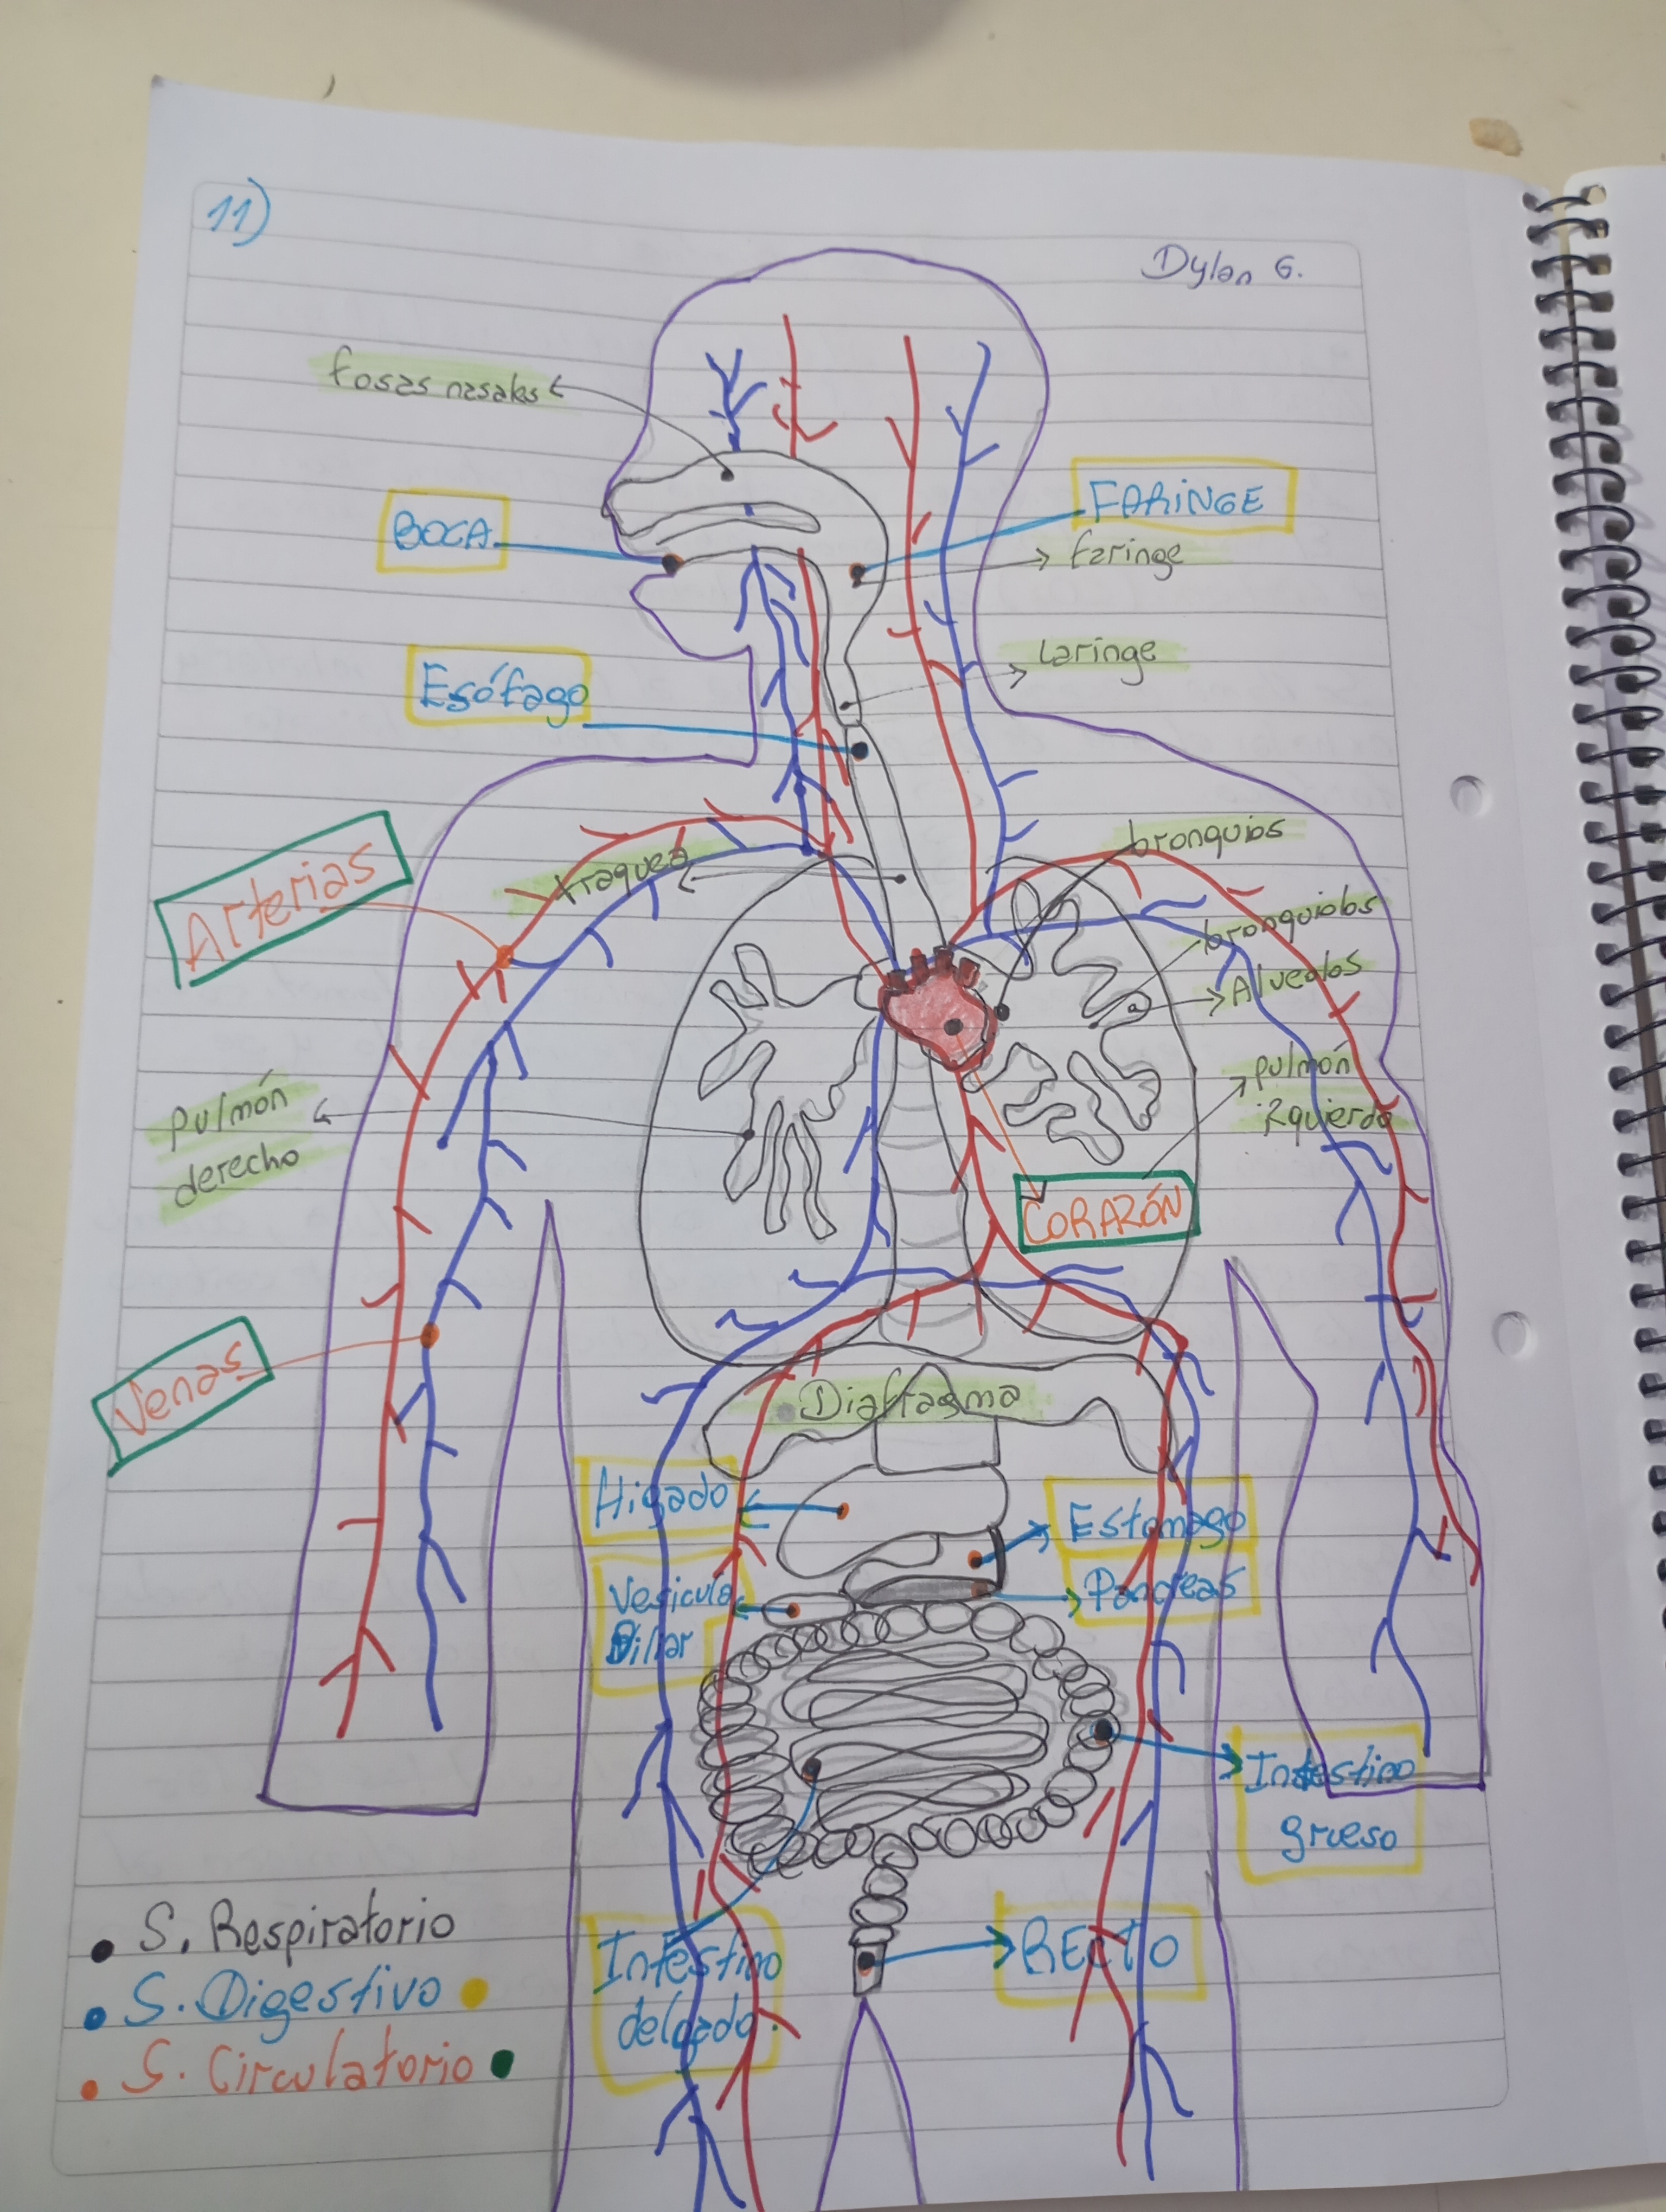 11)
Dylan G.
fosas nasales
BOCA
FARINGE
faringe
Laringe
Esófago
bronquios
traquea
Arterias
bronquiolos
Alveolos
pulmón
izquierdo
pulmón
derecho
CORAZÓN
Venas
Diafragma
Higado
Estomago
Vesicula
Biliar
Pancreas
Intestino
grueso
S. Respiratorio
S. Digestivo
S. Circulatorio
Intestino
delgado.
RECTO